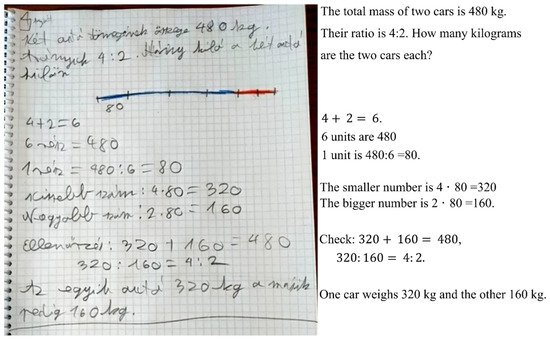 Két autó tömegének összege 480 kg.
Arányuk 4:2. Hány kiló a két autó
külön
80
4+2=6
6 rész = 480
1 rész = 480:6=80
Kisebb szám: 4·80=320
Nagyobb szám: 2·80=160
Ellenőrzés: 320+160=480
320:160=4:2
Az egyik autó 320 kg a másik
pedig 160 kg.
The total mass of two cars is 480 kg.
Their ratio is 4:2. How many kilograms
are the two cars each?
4 + 2 = 6.
6 units are 480
1 unit is 480:6 =80.
The smaller number is 4 · 80 =320
The bigger number is 2 · 80 =160.
Check: 320 + 160 = 480,
320:160 = 4:2.
One car weighs 320 kg and the other 160 kg.